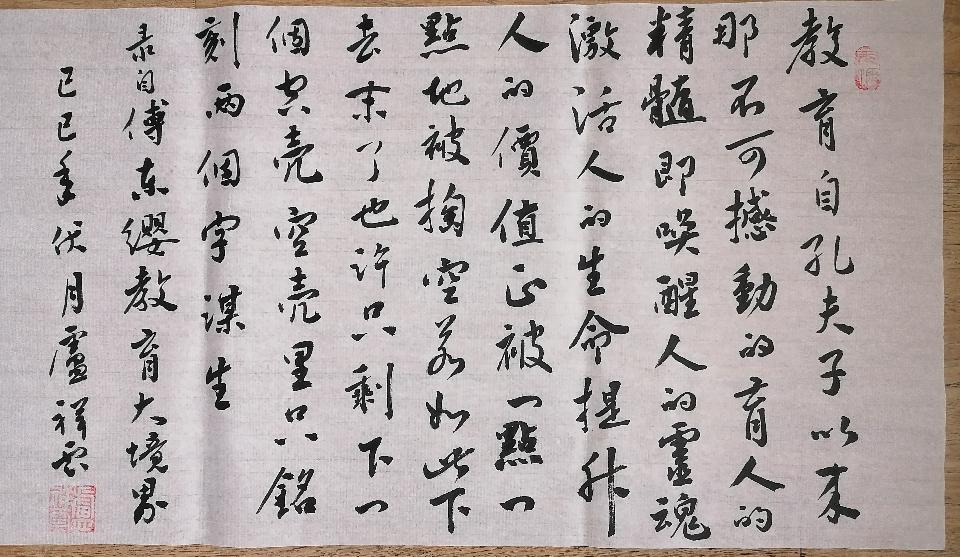 教育自孔夫子以来
那不可撼動的育人的
精髓即唤醒人的靈魂
激活人的生命提升
人的價值正被一點一
點地被掏空若如此下
去末了也许只剩下一
個空壳空壳里只銘
刻兩個字谋生
录自傅东缨教育大境界
己巳年伏月盧祥云